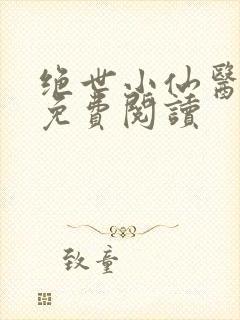 绝世小仙醫
免費閱讀
致童